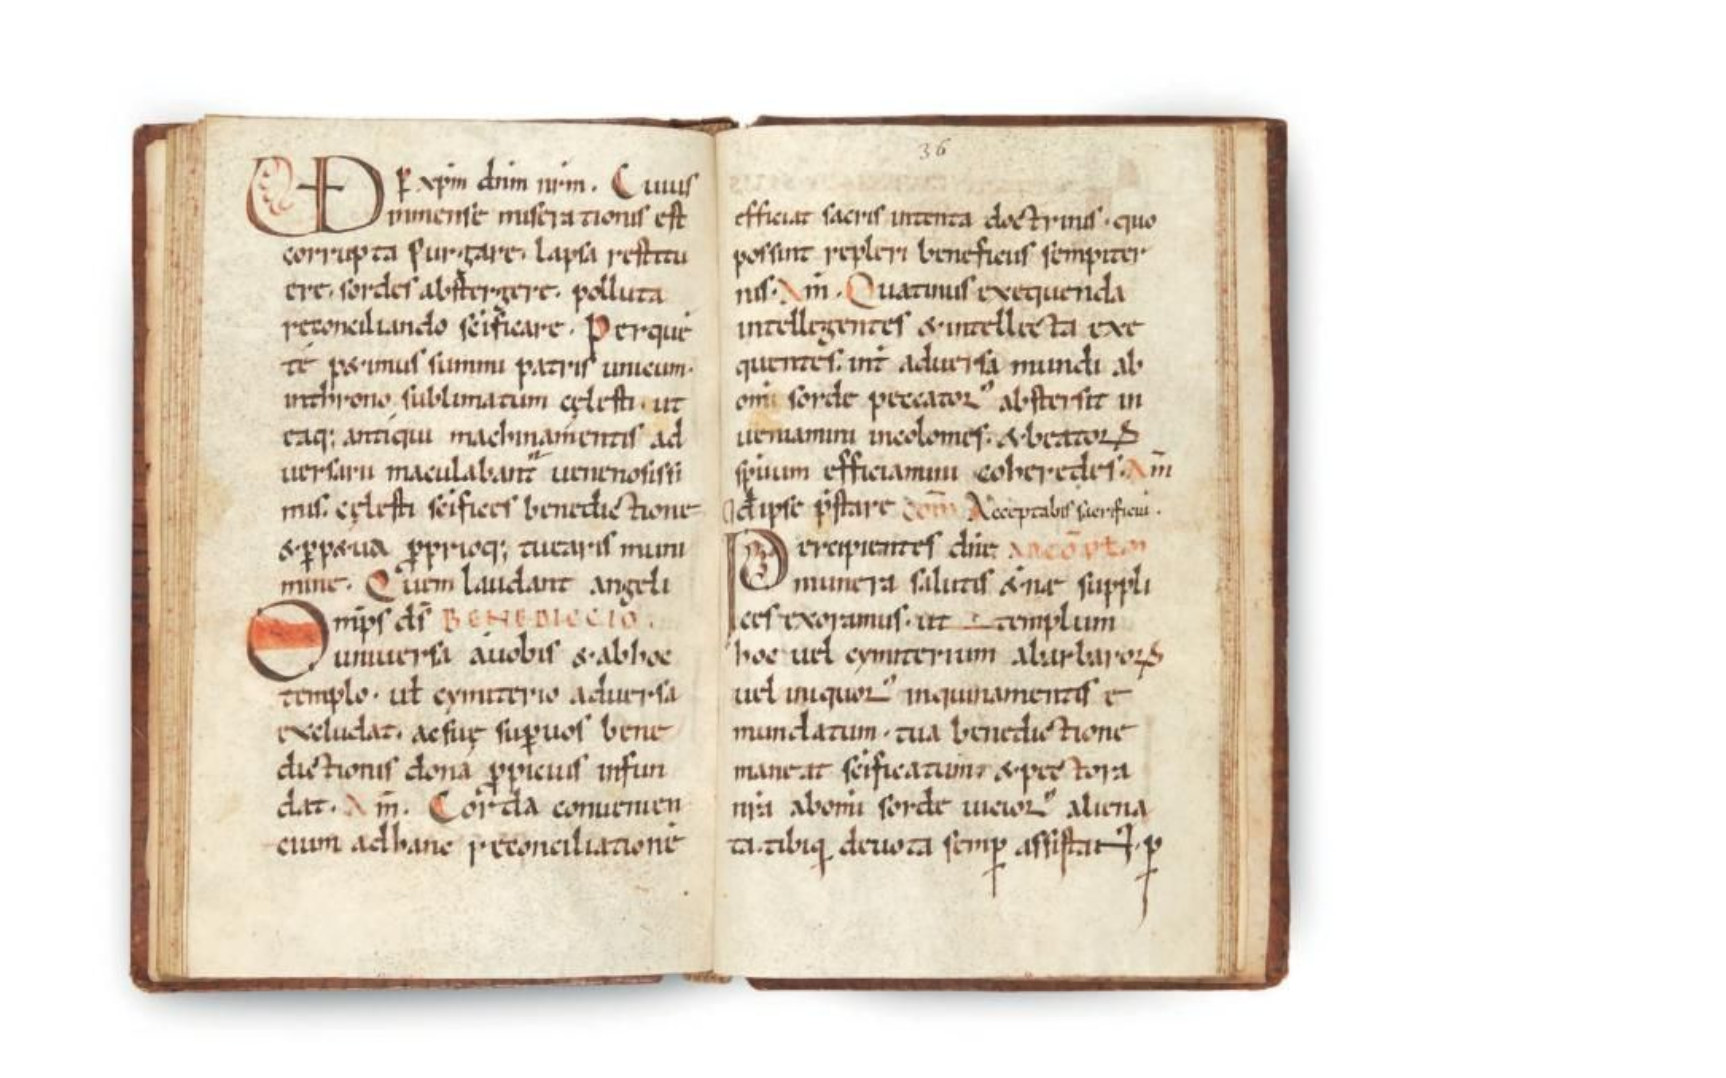 VD p xpm dnm nrm. Cuius
inmense miserationis est
corrupta purgare. lapsa restitu
ere. sordes abstergere. polluta
reconciliando scificare. Perque
te p&imus summi patris unicum.
inthrono sublimatum cęlesti. ut
eaq; antiqui machinamentis ad
versarii maculabant venenosissi
mis. cęlesti scifices benedictione
&pp&ua pprioq; tuearis muni
mine. Quem laudant angeli
Omips ds BENEDICCIO.
universa avobis &abhoc
templo. ul cymiterio adversa
excludat. acsuę supvos bene
dictionis dona ppicius infun
dat. Am. Corda convenien
cium adhanc reconciliatione
36
efficiat sacris intenta doctrinis. quo
possint repleri beneficiis sempiter
nis. Am. Quatinus exequenda
intellegentes &intellecta exe
quentes. int adversa mundi ab
omi sorde peccator abstersit in
veniamini incolomes. &beator
spiuum efficiamini coheredes. Am
dipse pstare Acceptabis sacrificiu.
Percipientes dne
munera salutis &ne suppli
ces exoramus. ut templum
hoc uel cymiterium abarbaror
uel iniquor inquinamentis e
mundatum. tua benedictione
maneat scificatum. &pectora
nra abomi sorde vicior aliena
ta. tibiq devota semp assistant. p